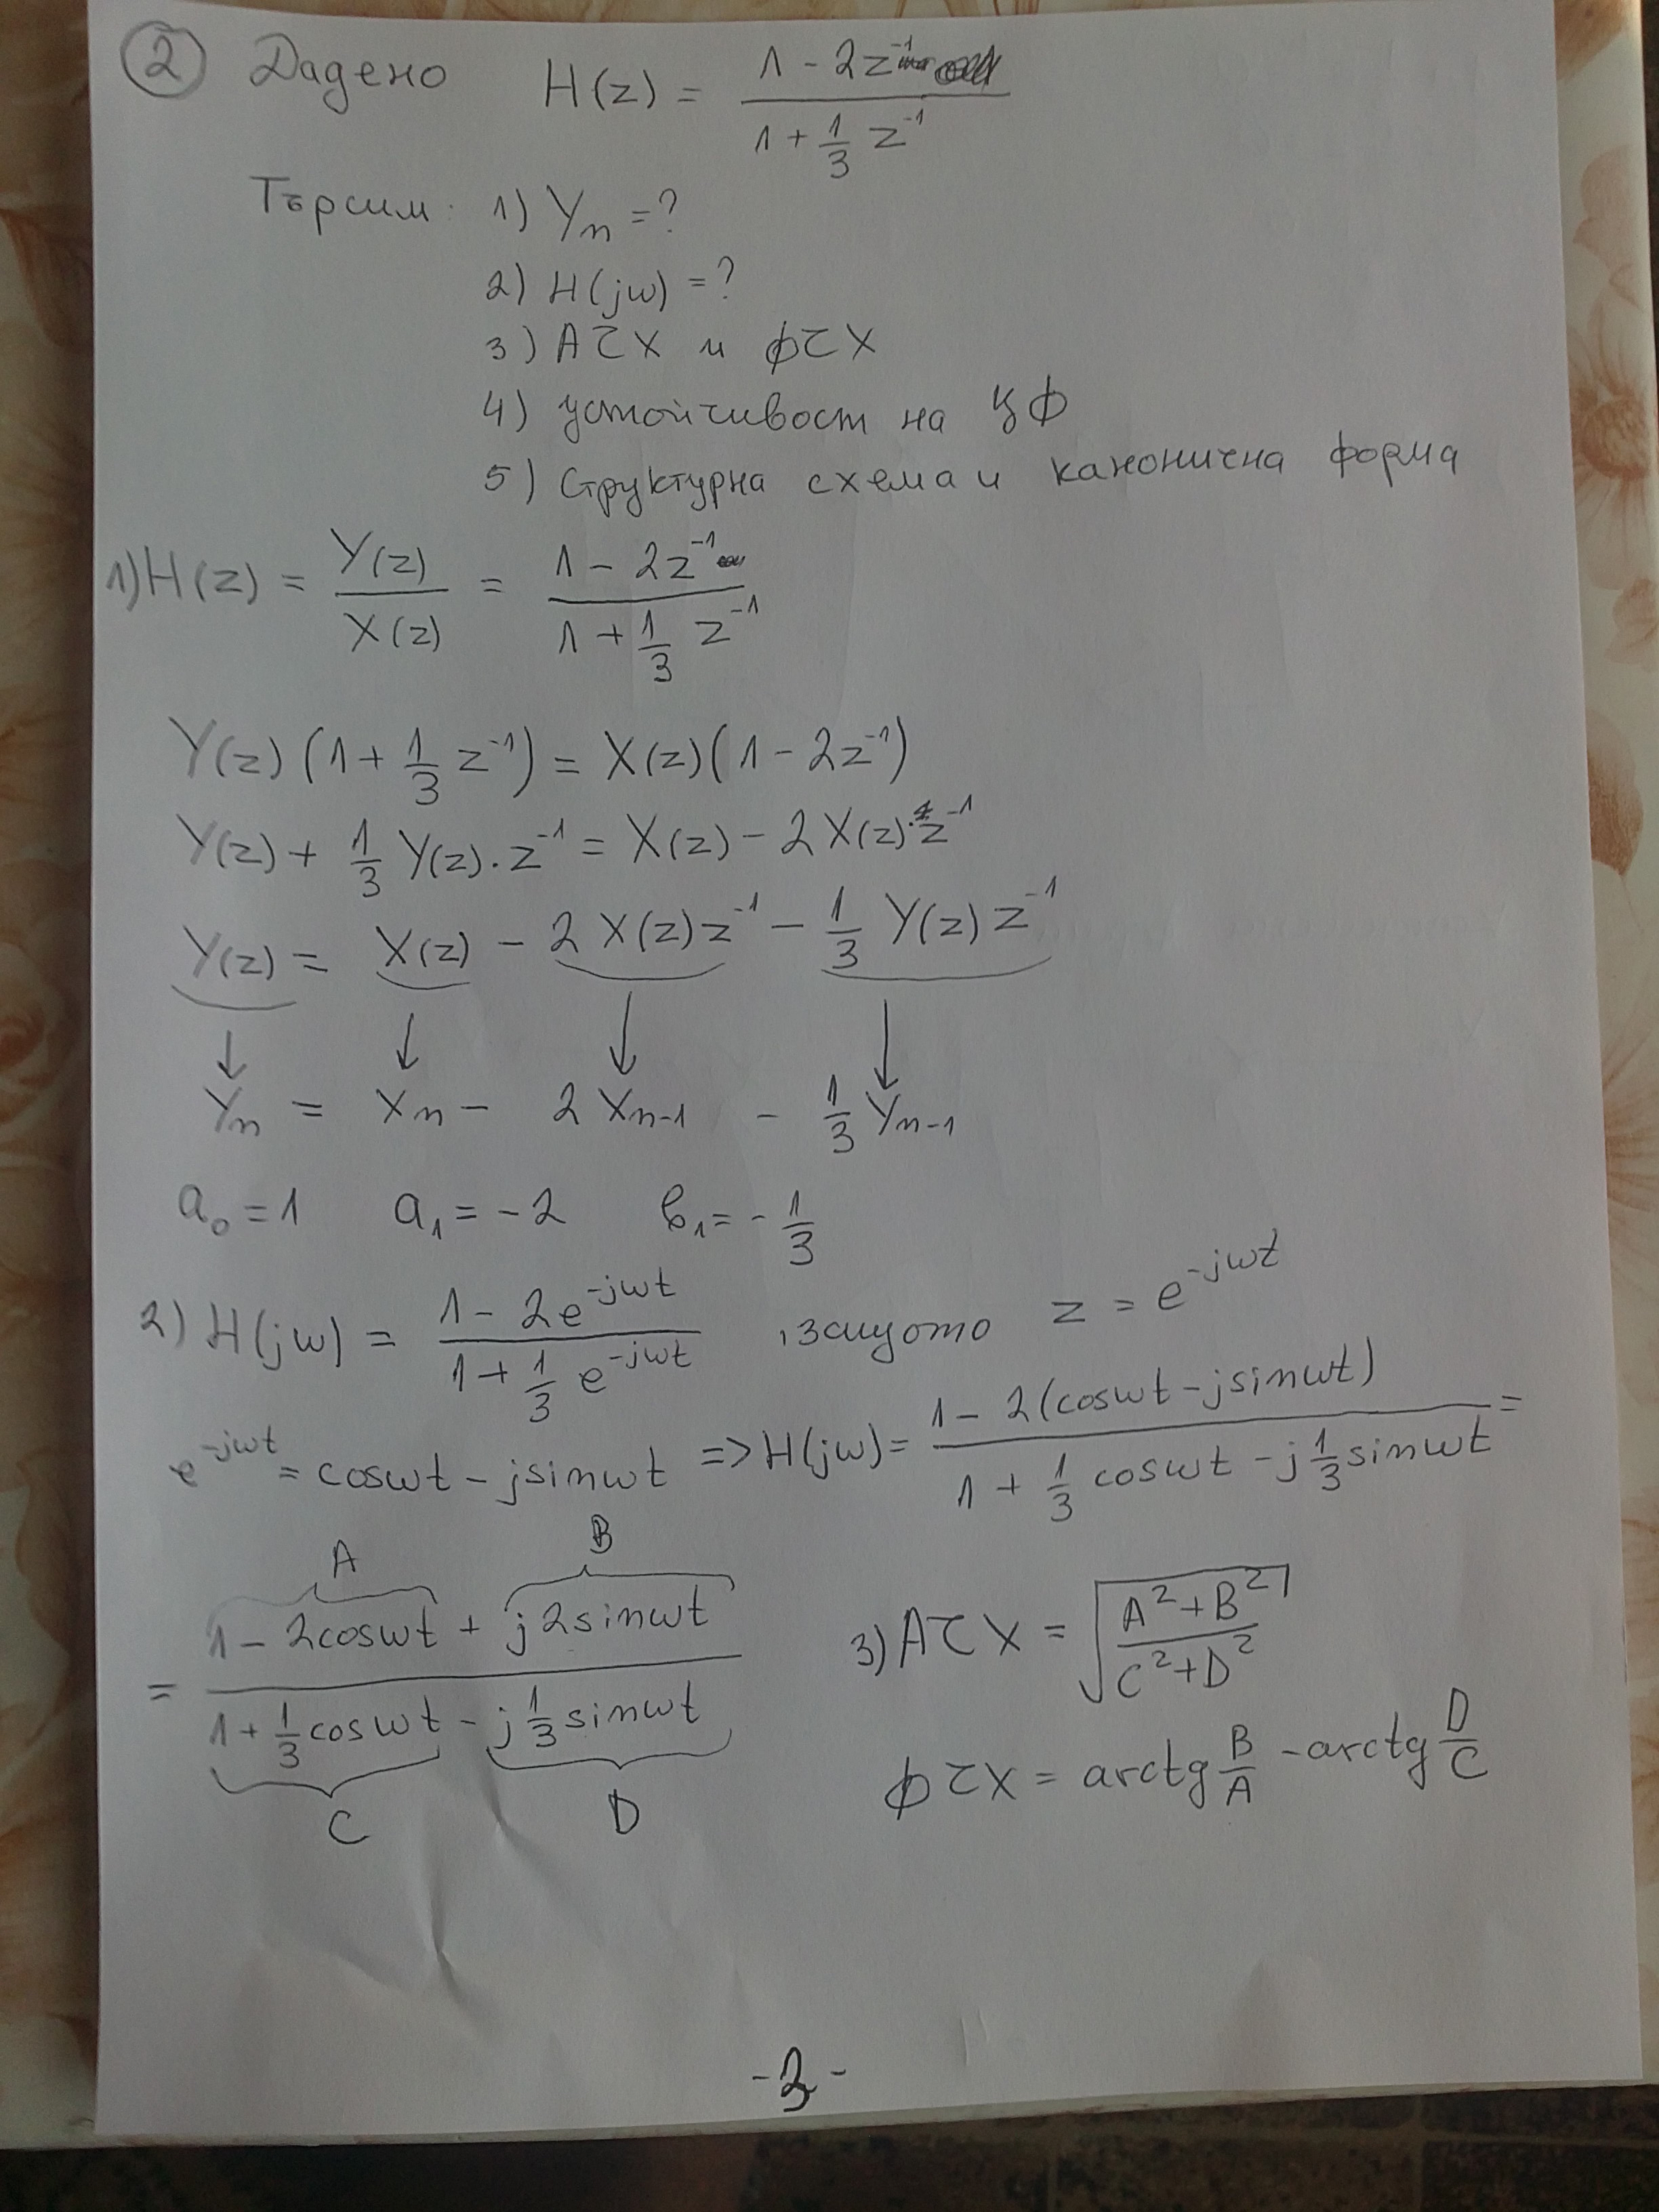 ② Дадено H(z) = (1 - 2z⁻¹)/(1 + 1/3 z⁻¹)
Търсим: 1) Yn = ?
2) H(jω) = ?
3) АЧХ и ФЧХ
4) устойчивост на ЦФ
5) Структурна схема и канонична форма
1) H(z) = Y(z)/X(z) = (1 - 2z⁻¹)/(1 + 1/3 z⁻¹)
Y(z)(1 + 1/3 z⁻¹) = X(z)(1 - 2z⁻¹)
Y(z) + 1/3 Y(z).z⁻¹ = X(z) - 2X(z).z⁻¹
Y(z) = X(z) - 2X(z)z⁻¹ - 1/3 Y(z)z⁻¹
↓ ↓ ↓ ↓
Yn = Xn - 2Xn-1 - 1/3 Yn-1
a₀ = 1 a₁ = -2 в₁ = -1/3
2) H(jω) = (1 - 2e^-jωt)/(1 + 1/3 e^-jωt) , защото z = e^-jωt
e^-jωt = cosωt - jsinωt => H(jω) = (1 - 2(cosωt - jsinωt))/(1 + 1/3 cosωt - j1/3 sinωt) =
A B
= (1 - 2cosωt + j2sinωt)/(1 + 1/3 cosωt - j1/3 sinωt)
C D
3) АЧХ = √((A² + B²)/(C² + D²))
ФЧХ = arctg B/A - arctg D/C
- 2 -